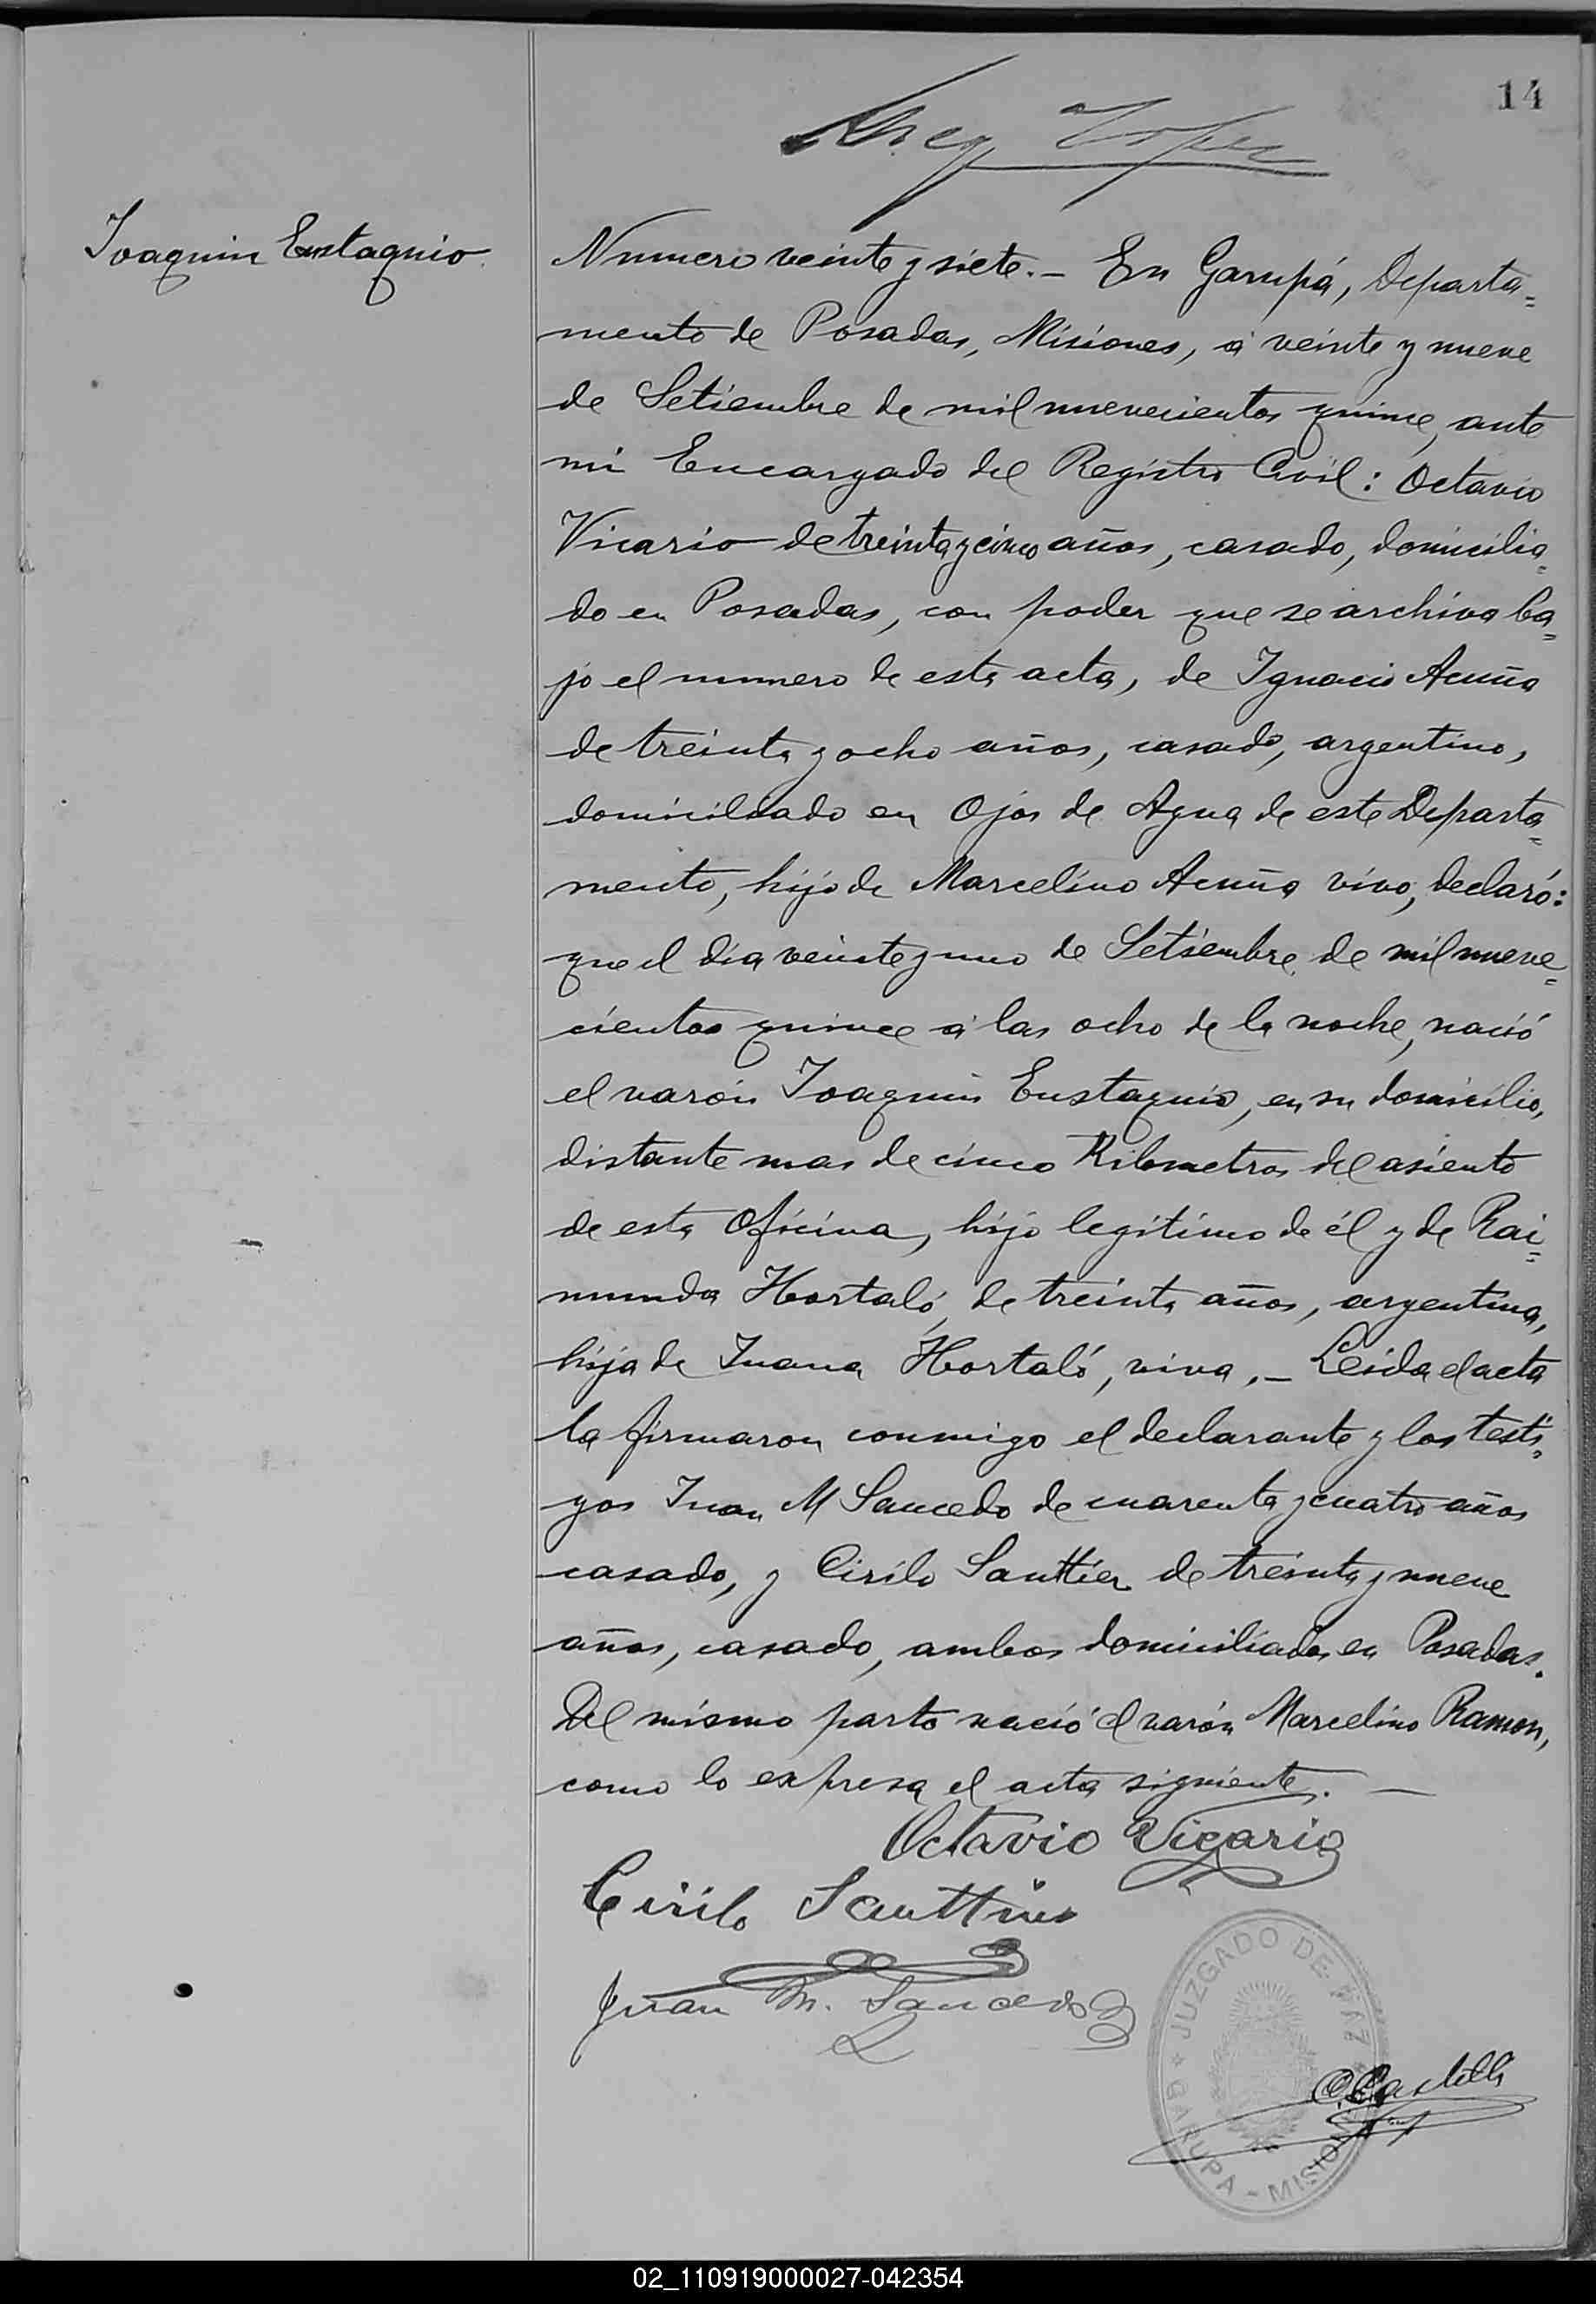 14
Joaquin Eustaquio
Numero veinte y siete.- En Garupá, Departa=
mento de Posadas, Misiones, á veinte y nueve
de Setiembre de mil nuevecientos quince, ante
mi Encargado del Registro Civil: Octavio
Vicario de treinta y cinco años, casado, domicilia=
do en Posadas, con poder que se archiva ba=
jo el numero de esta acta, de Ignacio Acuña
de treinta y ocho años, casado, argentino,
domiciliado en Ojos de Agua de este Departa=
mento, hijo de Marcelino Acuña vivo, declaró:
que el dia veinte y uno de Setiembre de mil nueve=
cientos quince á las ocho de la noche, nació
el varón Joaquin Eustaquio, en su domicilio,
distante mas de cinco Kilometros del asiento
de esta Oficina, hijo legitimo de él y de Rai=
munda Hortaló, de treinta años, argentina,
hija de Juana Hortaló, viva,.- Leida el acta
la firmaron conmigo el declarante y los testi=
gos Juan M Saucedo de cuarenta y cuatro años
casado, y Cirilo Sauttier de treinta y nueve
años, casado, ambos domiciliados en Posadas.
Del mismo parto nació el varón Marcelino Ramon,
como lo expresa el acta siguiente. -
Octavio Vicario
Cirilo Sauttier
Juan M. Saucedo
JUZGADO DE PAZ
GARUPA - MISIONES
02_110919000027-042354